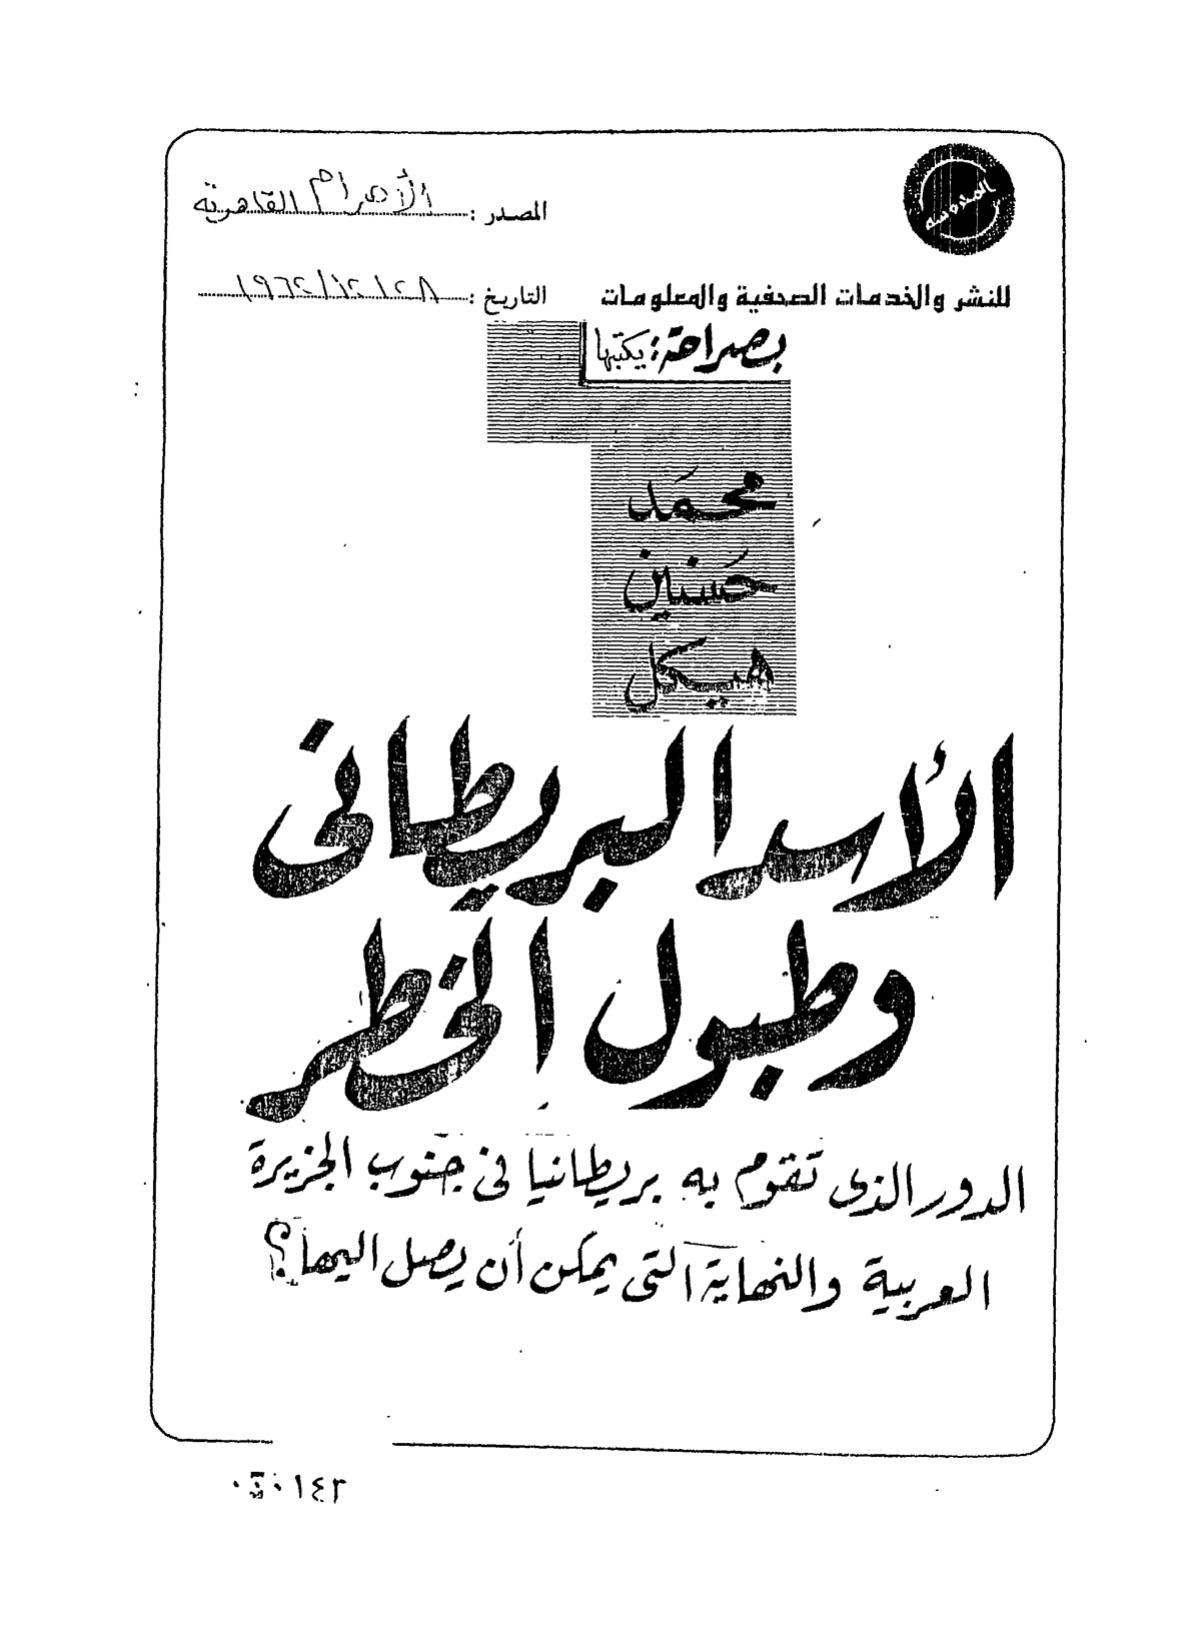 المصدر : الأهرام القاهرية
المدوسه
للنشر والخدمات الصحفية والمعلومات
التاريخ : ١٩٦٢/١٢/٢٨
بصراحة : يكتبها
محمد
حسنين
هيكل
الأسد البريطانى
وطبول الخطر
الدور الذى تقوم به بريطانيا فى جنوب الجزيرة
العربية والنهاية التى يمكن أن يصل اليها ؟